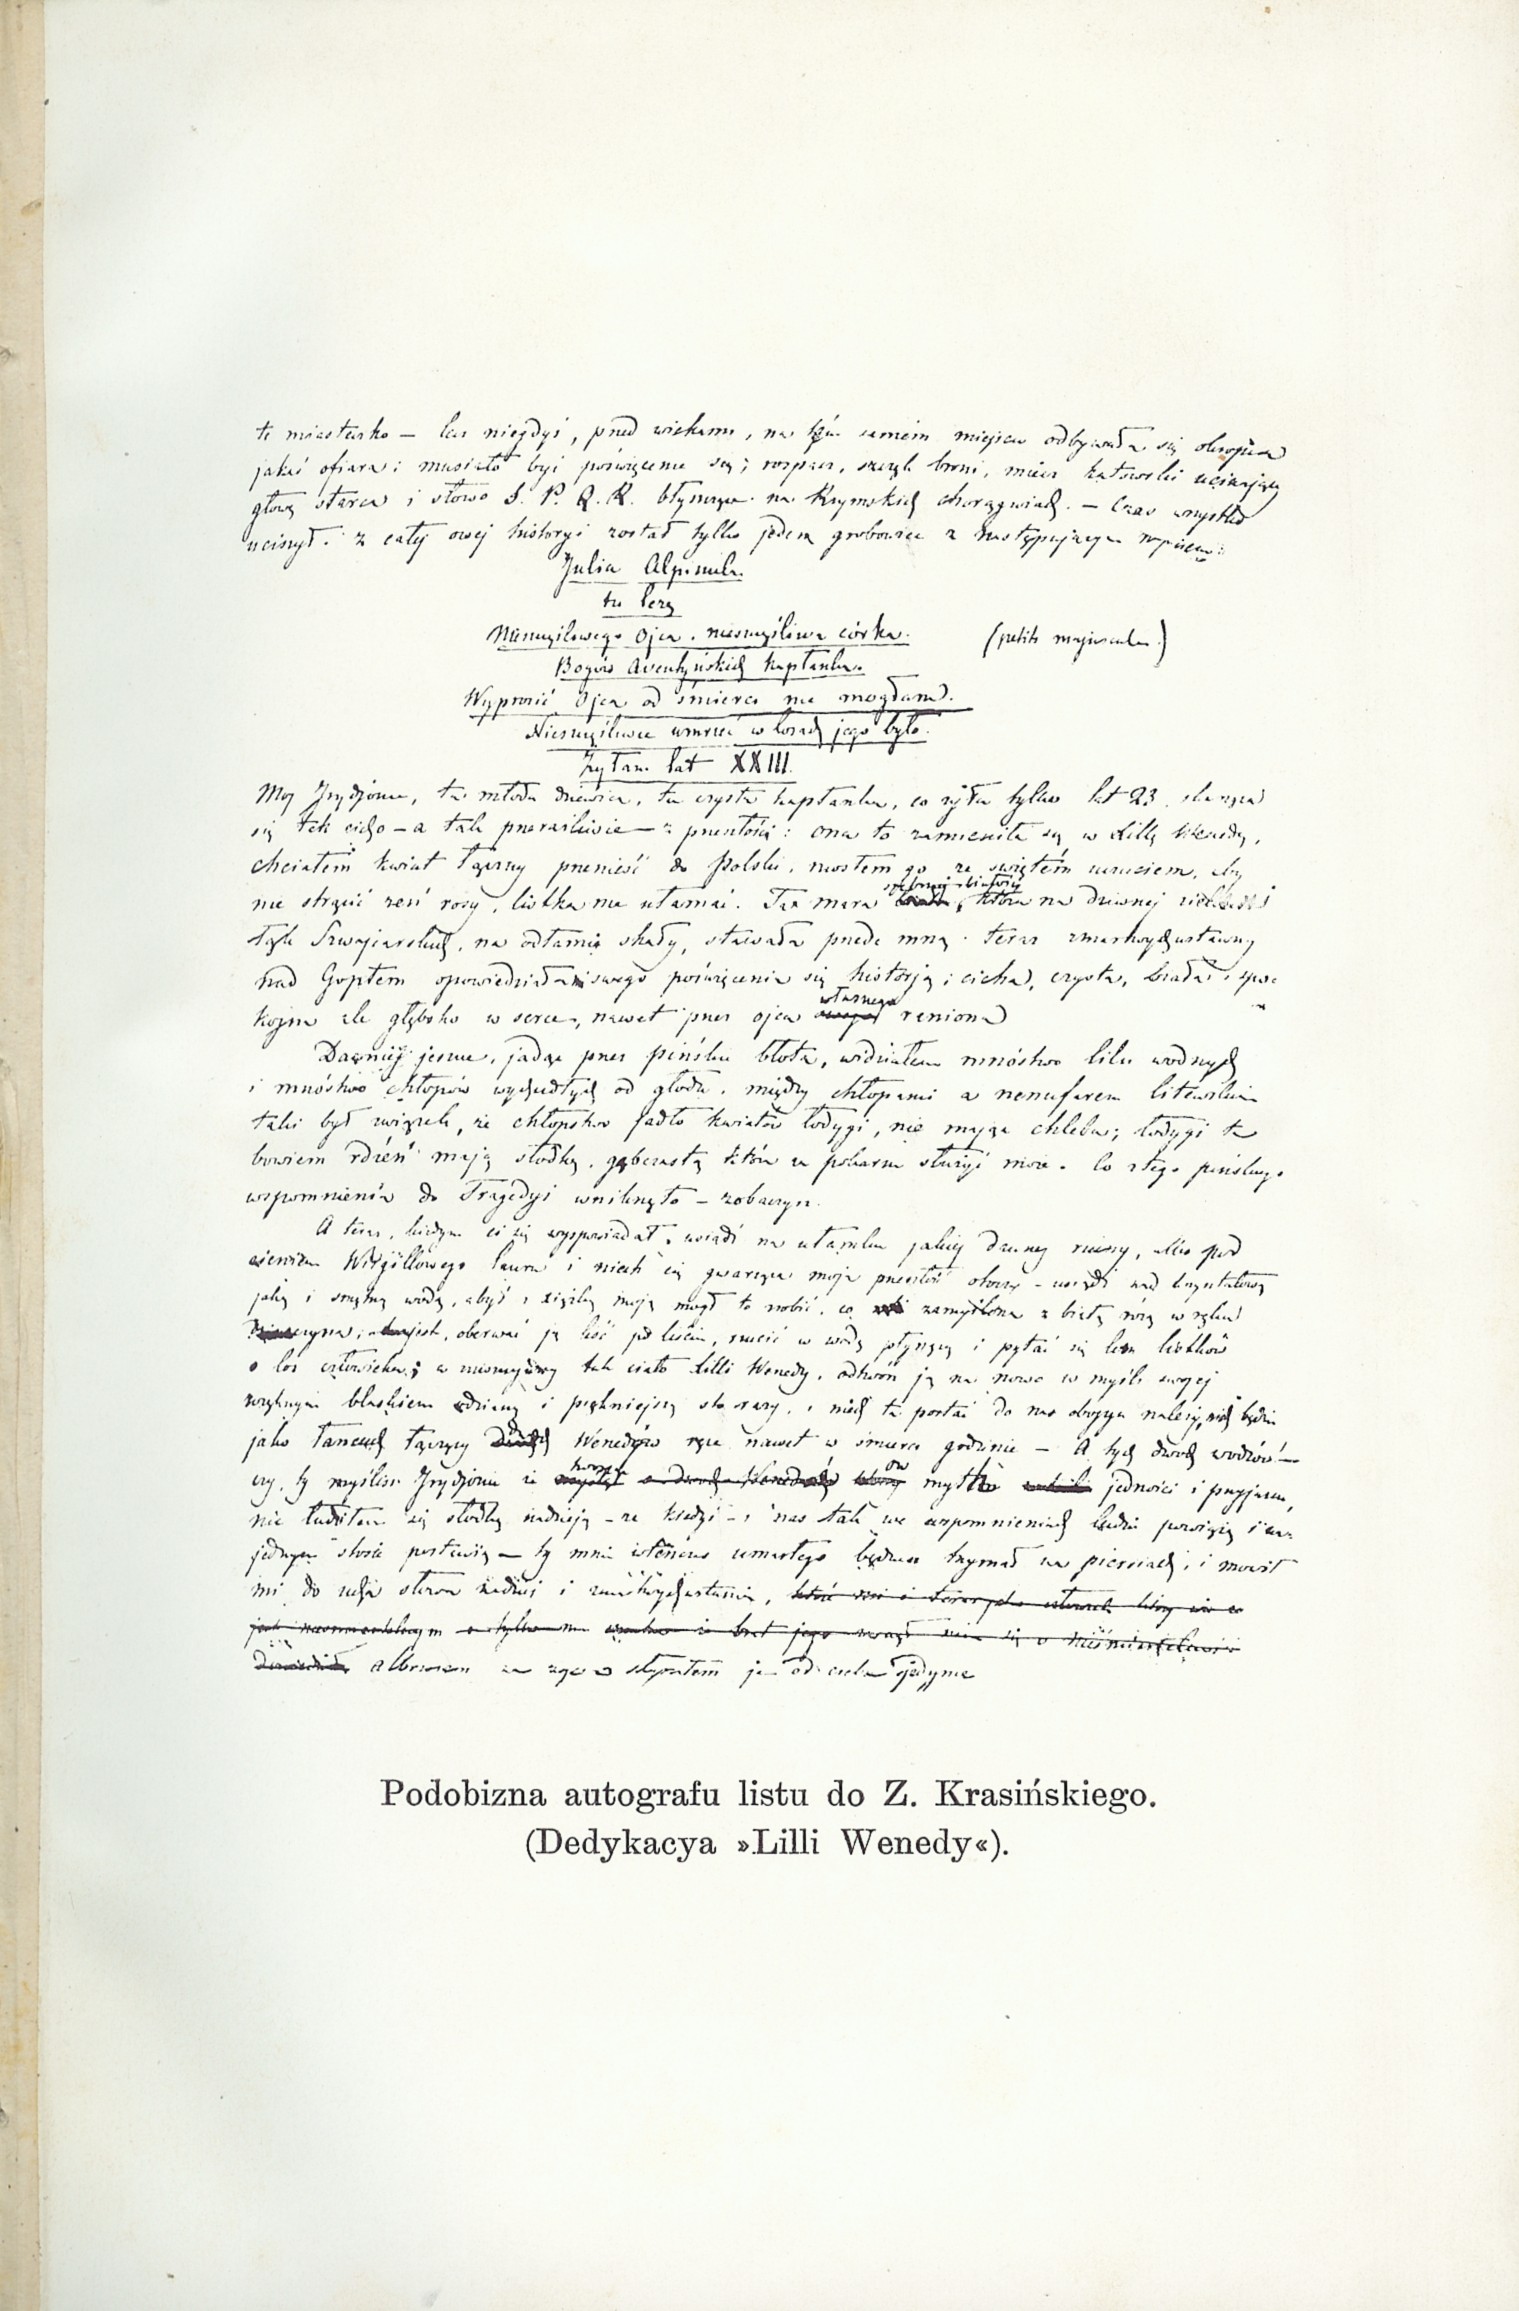 te miasteczko — lecz niegdyś, przed wiekami, na tém samém miejscu odbywała się okropna
jakaś ofiara; musiało być poświęcenie się; rozpacz, szczęk broni, miecz katowski ucinający
głowę starca i słowo S. P. Q. R. błyszczące na Rzymskich chorągwiach. — Czas wszystko
uciszył. z całej owej historyi został tylko jeden grobowiec z następującym napisem:
Julia Alpinula
tu leżę
Nieszczęśliwego Ojca, nieszczęśliwa córka.
(petite majuscule.)
Bogów Aventyńskich kapłanka.
Wyprosić Ojca od śmierci nie mogłam.
Nieszczęśliwie umrzeć w losach jego było.
Żyłam lat XXIII.
Moj Irydjonie, ta młoda dziewica, ta czysta kapłanka, co żyła tylko lat 23, skarżąca
się tak cicho — a tak przeraźliwie — z przeszłości: ona to zamieniła się w Lillę Wenedę,
chciałem kwiat łączny przenieść do Polski. niosłem go ze świętém uczuciem, aby
nie strącić zeń rosy, listka nie ułamać. Taż mara srebrnej białości, która na dziwnej zieloności
łąk Szwajcarskich, na odłamie skały, stawała przede mną. teraz zmartwychwstawszy
nad Gopłem opowiedziała mi swego poświęcenia się historją; cicha, czysta, biała, spo-
kojna ale głęboko w serce, nawet przez ojca własnego raniona
Dawniej jeszcze, jadąc przez pińskie błota, widziałem mnóstwo lilii wodnych
i mnóstwo chłopów wychudłych od głodu. między chłopami a nenufarem litewskim
taki był związek, że chłopstwo jadło kwiatów łodygi, nie mając chleba; łodygi te
bowiem rdzeń mają słodką, gąbczastą która za pokarm służyć może. Co z tego pińskiego
wspomnienia do Tragedyi wniknęło — zobaczysz.
A teraz, kiedym ci się wyspowiadał, usiądź na ułamku jakiej dawnej ruiny, albo pod
cieniem Wirgiliowego lauru i niech cię gwarząca moja przeszłość otoczy — usiądź nad kryształową
jaką i smętną wodą, abyś z xiążką moją mógł to robić, co zamyślona z białą różą w ręku
czyni, obrywać ją liść po liściu, rzucić w wodę płynącą i pytać się lecąc listków
o los człowieka; a rozerwawszy tak ciało Lilli Wenedy, odtwórz ją na nowo w myśli swojej
zwiększym blaskiem odzianą i piękniejszą sto razy, i niech ta postać do nas obojga należy, niech będzie
jako łańcuch łączący dwóch Wenedów ręce nawet w śmierci godzinie — A tych dwóch wodzów —
czy ty myślisz Irydjonie że myśl jedności i przyjaźni,
nie łudziłem się słodką nadzieją — że kiedyś — i nas tak we wspomnieniach ludzie powiążą i na
jednym stosie postawią — ty mnie wtenczas umarłego będziesz trzymał na piersiach, i mówił
mi do ucha słowa nadziei i zmartwychwstania,
albowiem za życia słyszałem je od ciebie jedynie
Podobizna autografu listu do Z. Krasińskiego.
(Dedykacya »Lilli Wenedy«).